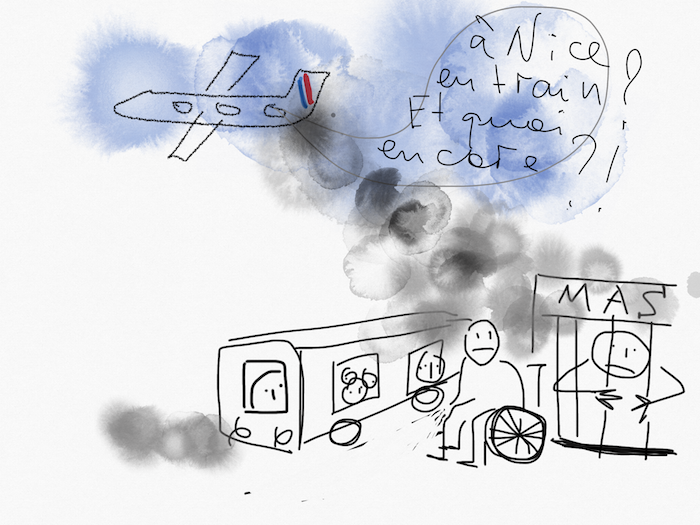 à Nice
en train ?
Et quoi
encore ?!
MAS